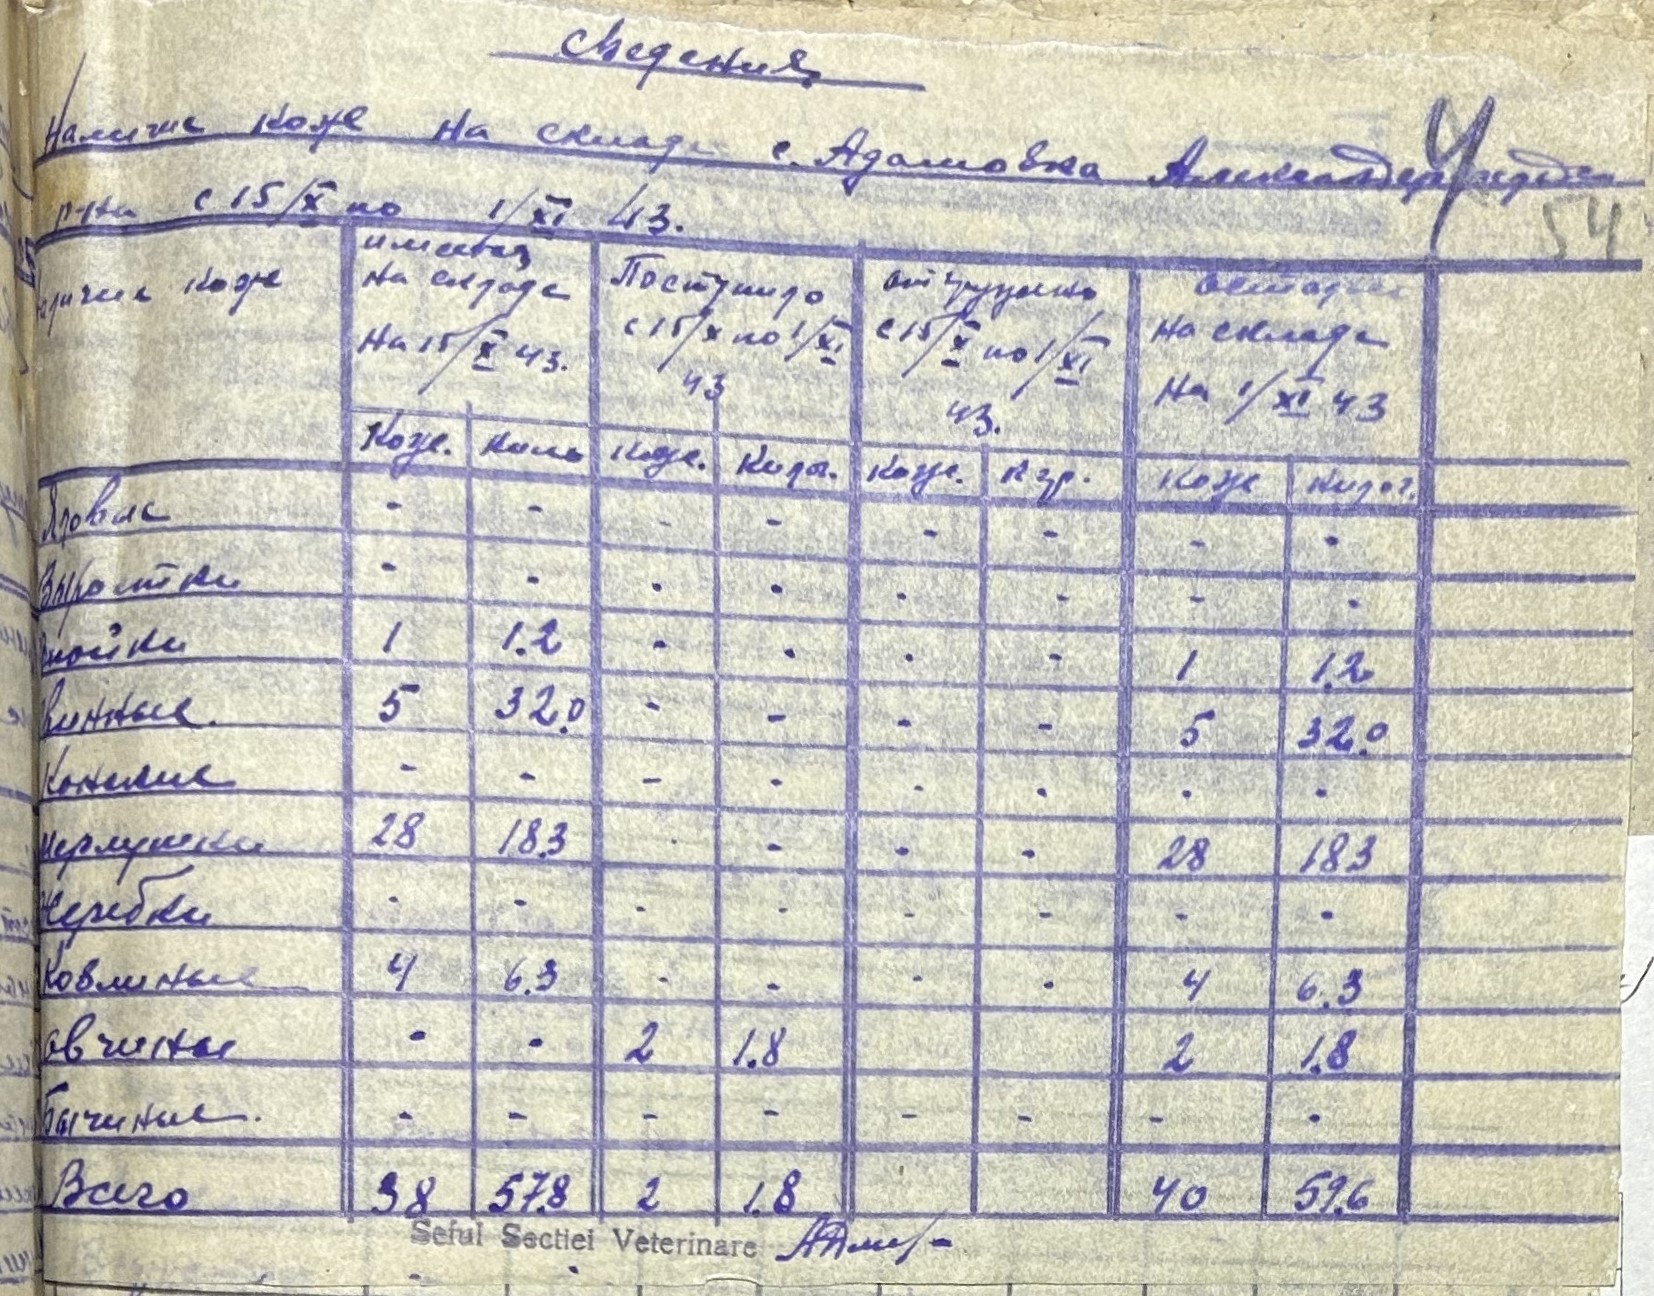 Сведения
Наличие кож на складе с. Адамовка
р-на с 15/X по 1/XI 43.
54
кож
имелось на складе На 15/X 43.
Поступило с 15/X по 1/XI 43
отгружено с 15/X по 1/XI 43.
на складе На 1/XI 43
Кож. Кило Кож. Килог. Кож. Кгр. Кож Килог.
Яровые - - - - - - - -
Выростки - - - - - - - -
1 1.2 - - - - 1 1.2
5 32.0 - - - - 5 32.0
Конские - - - - - - - -
мерлушки 28 18.3 - - - - 28 18.3
Жеребки - - - - - - - -
Козлиные 4 6.3 - - - - 4 6.3
овчины - - 2 1.8 2 1.8
Бычиные. - - - - - - - -
Всего 38 57.8 2 1.8 40 59.6
Seful Sectiei Veterinare